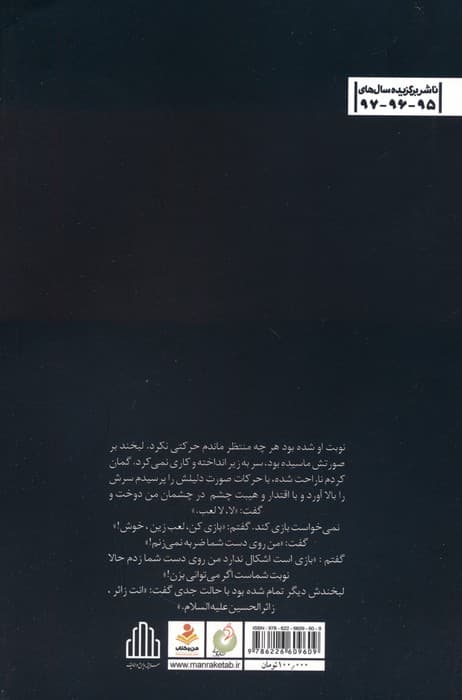 ناشر برگزیده سال‌های
۹۵-۹۶-۹۷
نوبت او شده بود هر چه منتظر ماندم حرکتی نکرد، لبخند بر
صورتش ماسیده بود، سر به زیر انداخته و کاری نمی‌کرد، گمان
کردم ناراحت شده، با حرکات صورت دلیلش را پرسیدم سرش
را بالا آورد و با اقتدار و هیبت چشم در چشمان من دوخت و
گفت: «لا، لا لعب.»
نمی‌خواست بازی کند. گفتم: «بازی کن، لعب زین، خوش!»
گفت: «من روی دست شما ضربه نمی‌زنم!»
گفتم: «بازی است اشکال ندارد من روی دست شما زدم حالا
نوبت شماست اگر می‌توانی بزن!»
لبخندش دیگر تمام شده بود با حالت جدی گفت: «انت زائر،
زائر الحسین علیه السلام.»
ISBN: 978-622-6609-60-9
9786226609609
۱۰۰,۰۰۰ تومان
من و کتاب
www.manraketab.ir